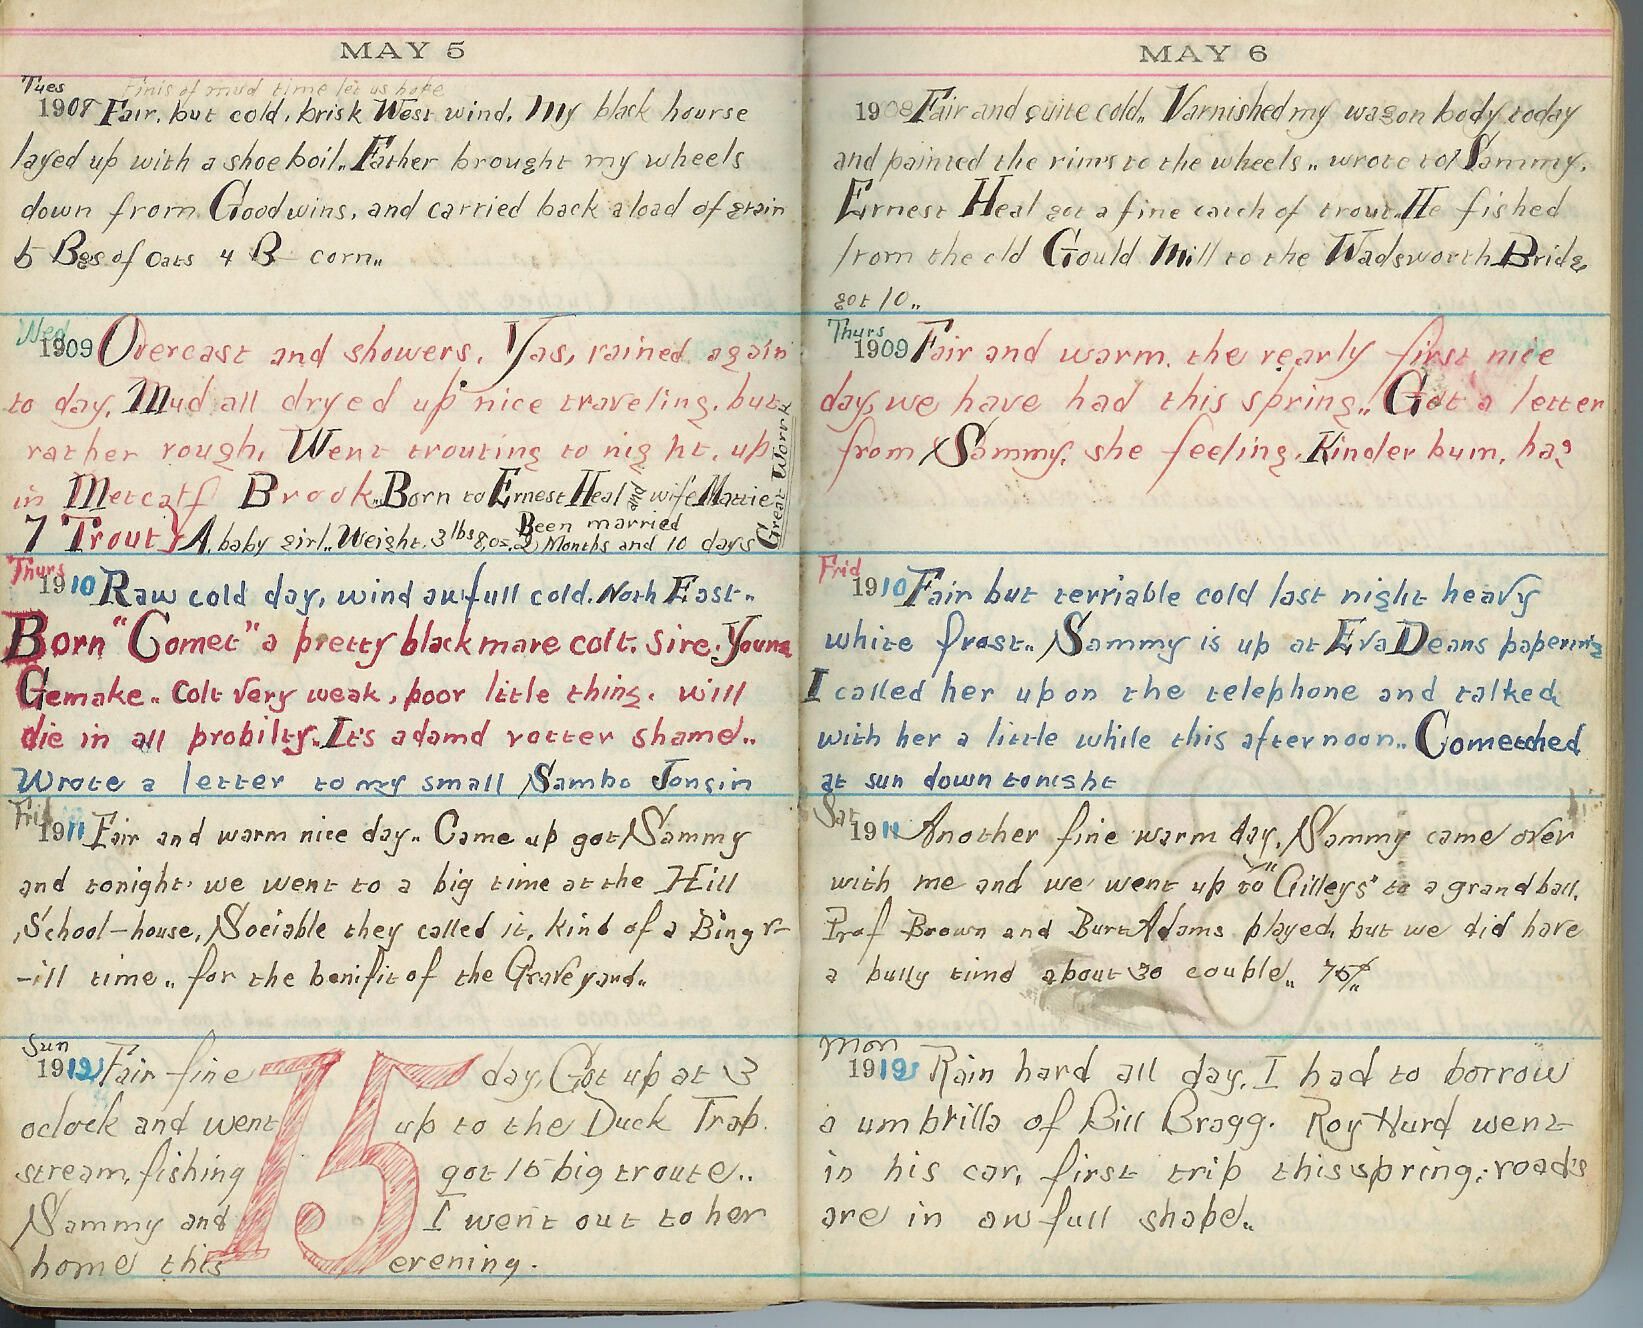 MAY 5
Tues Finis of mud time let us hope
1908 Fair, but cold, brisk West wind. My black hourse
layed up with a shoe boil.. Father brought my wheels
down from Goodwins, and carried back a load of grain
5 Bgs of oats 4 B corn..
Wed
1909 Overcast and showers. Yas, rained again
to day. Mud all dryed up nice traveling, but
rather rough, Went trouting to night, up
in Metcalf Brook. Born to Ernest Heal and wife Mattie
7 Trout} A baby girl.. Weight. 3 lbs 8 oz. Been married
2 Months and 10 days
Great Worrk
Thurs
1910 Raw cold day, wind awfull cold. North East..
Born "Comet" a pretty black mare colt. Sire. Young
Gemake.. Colt very weak, poor little thing. will
die in all probilty.. It's a damd rotter shame..
Wrote a letter to my small Sambo Jonsin
Fri
1911 Fair and warm nice day.. Came up got Sammy
and tonight we went to a big time at the Hill
School-house, Sociable they called it, kind of a Bing v-
-ill time.. for the benifit of the Graveyard..
Sun
1912 Fair fine day, Got up at 3
oclock and went up to the Duck Trap.
stream, fishing got 15 big troute..
Sammy and I went out to her
home this evening.
15
MAY 6
1908 Fair and quite cold.. Varnished my wagon body today
and painted the rims to the wheels.. wrote to Sammy.
Ernest Heal got a fine catch of trout.. He fished
from the old Gould Mill to the Wadsworth Bridg
got 10..
Thurs
1909 Fair and warm. the rearly first nice
day, we have had this spring.. Got a letter
from Sammy, she feeling. Kinder bum, ha?
Frid
1910 Fair but terriable cold last night heavy
white frost.. Sammy is up at Eva Deans papering
I called her up on the telephone and talked
with her a little while this afternoon.. Cometched
at sun down tonight
Sat
1911 Another fine warm day, Sammy came over
with me and we went up to "Gilleys" to a grand ball.
Prof Brown and Burt Adams played, but we did have
a bully timd about 30 couple.. 75¢..
Mon
1912 Rain hard all day. I had to borrow
a umbrilla of Bill Bragg. Roy Hurd went
in his car, first trip this spring, roads
are in awfull shape..